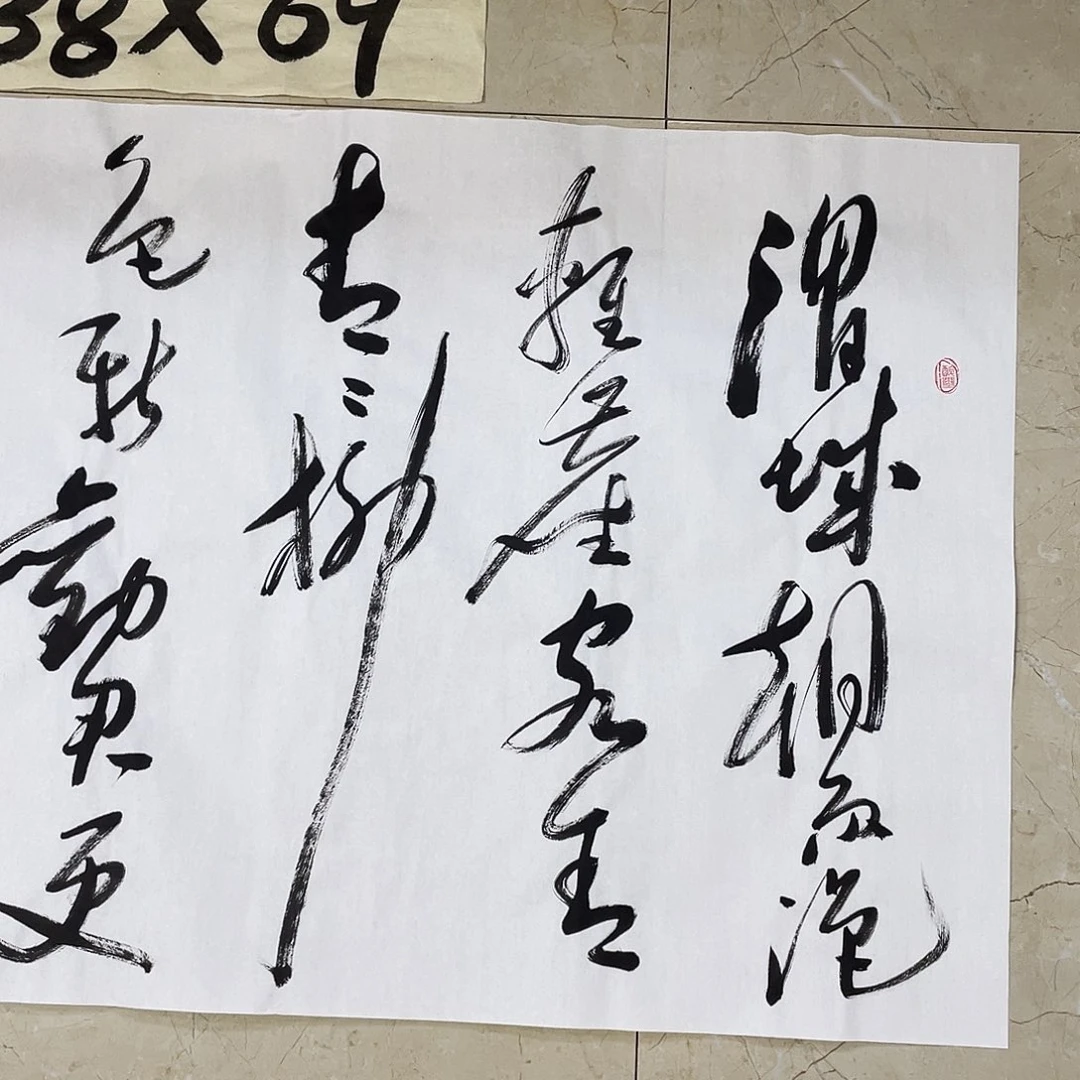 38X69
渭城朝雨浥
輕塵客舍
青〻柳
色新勸君更